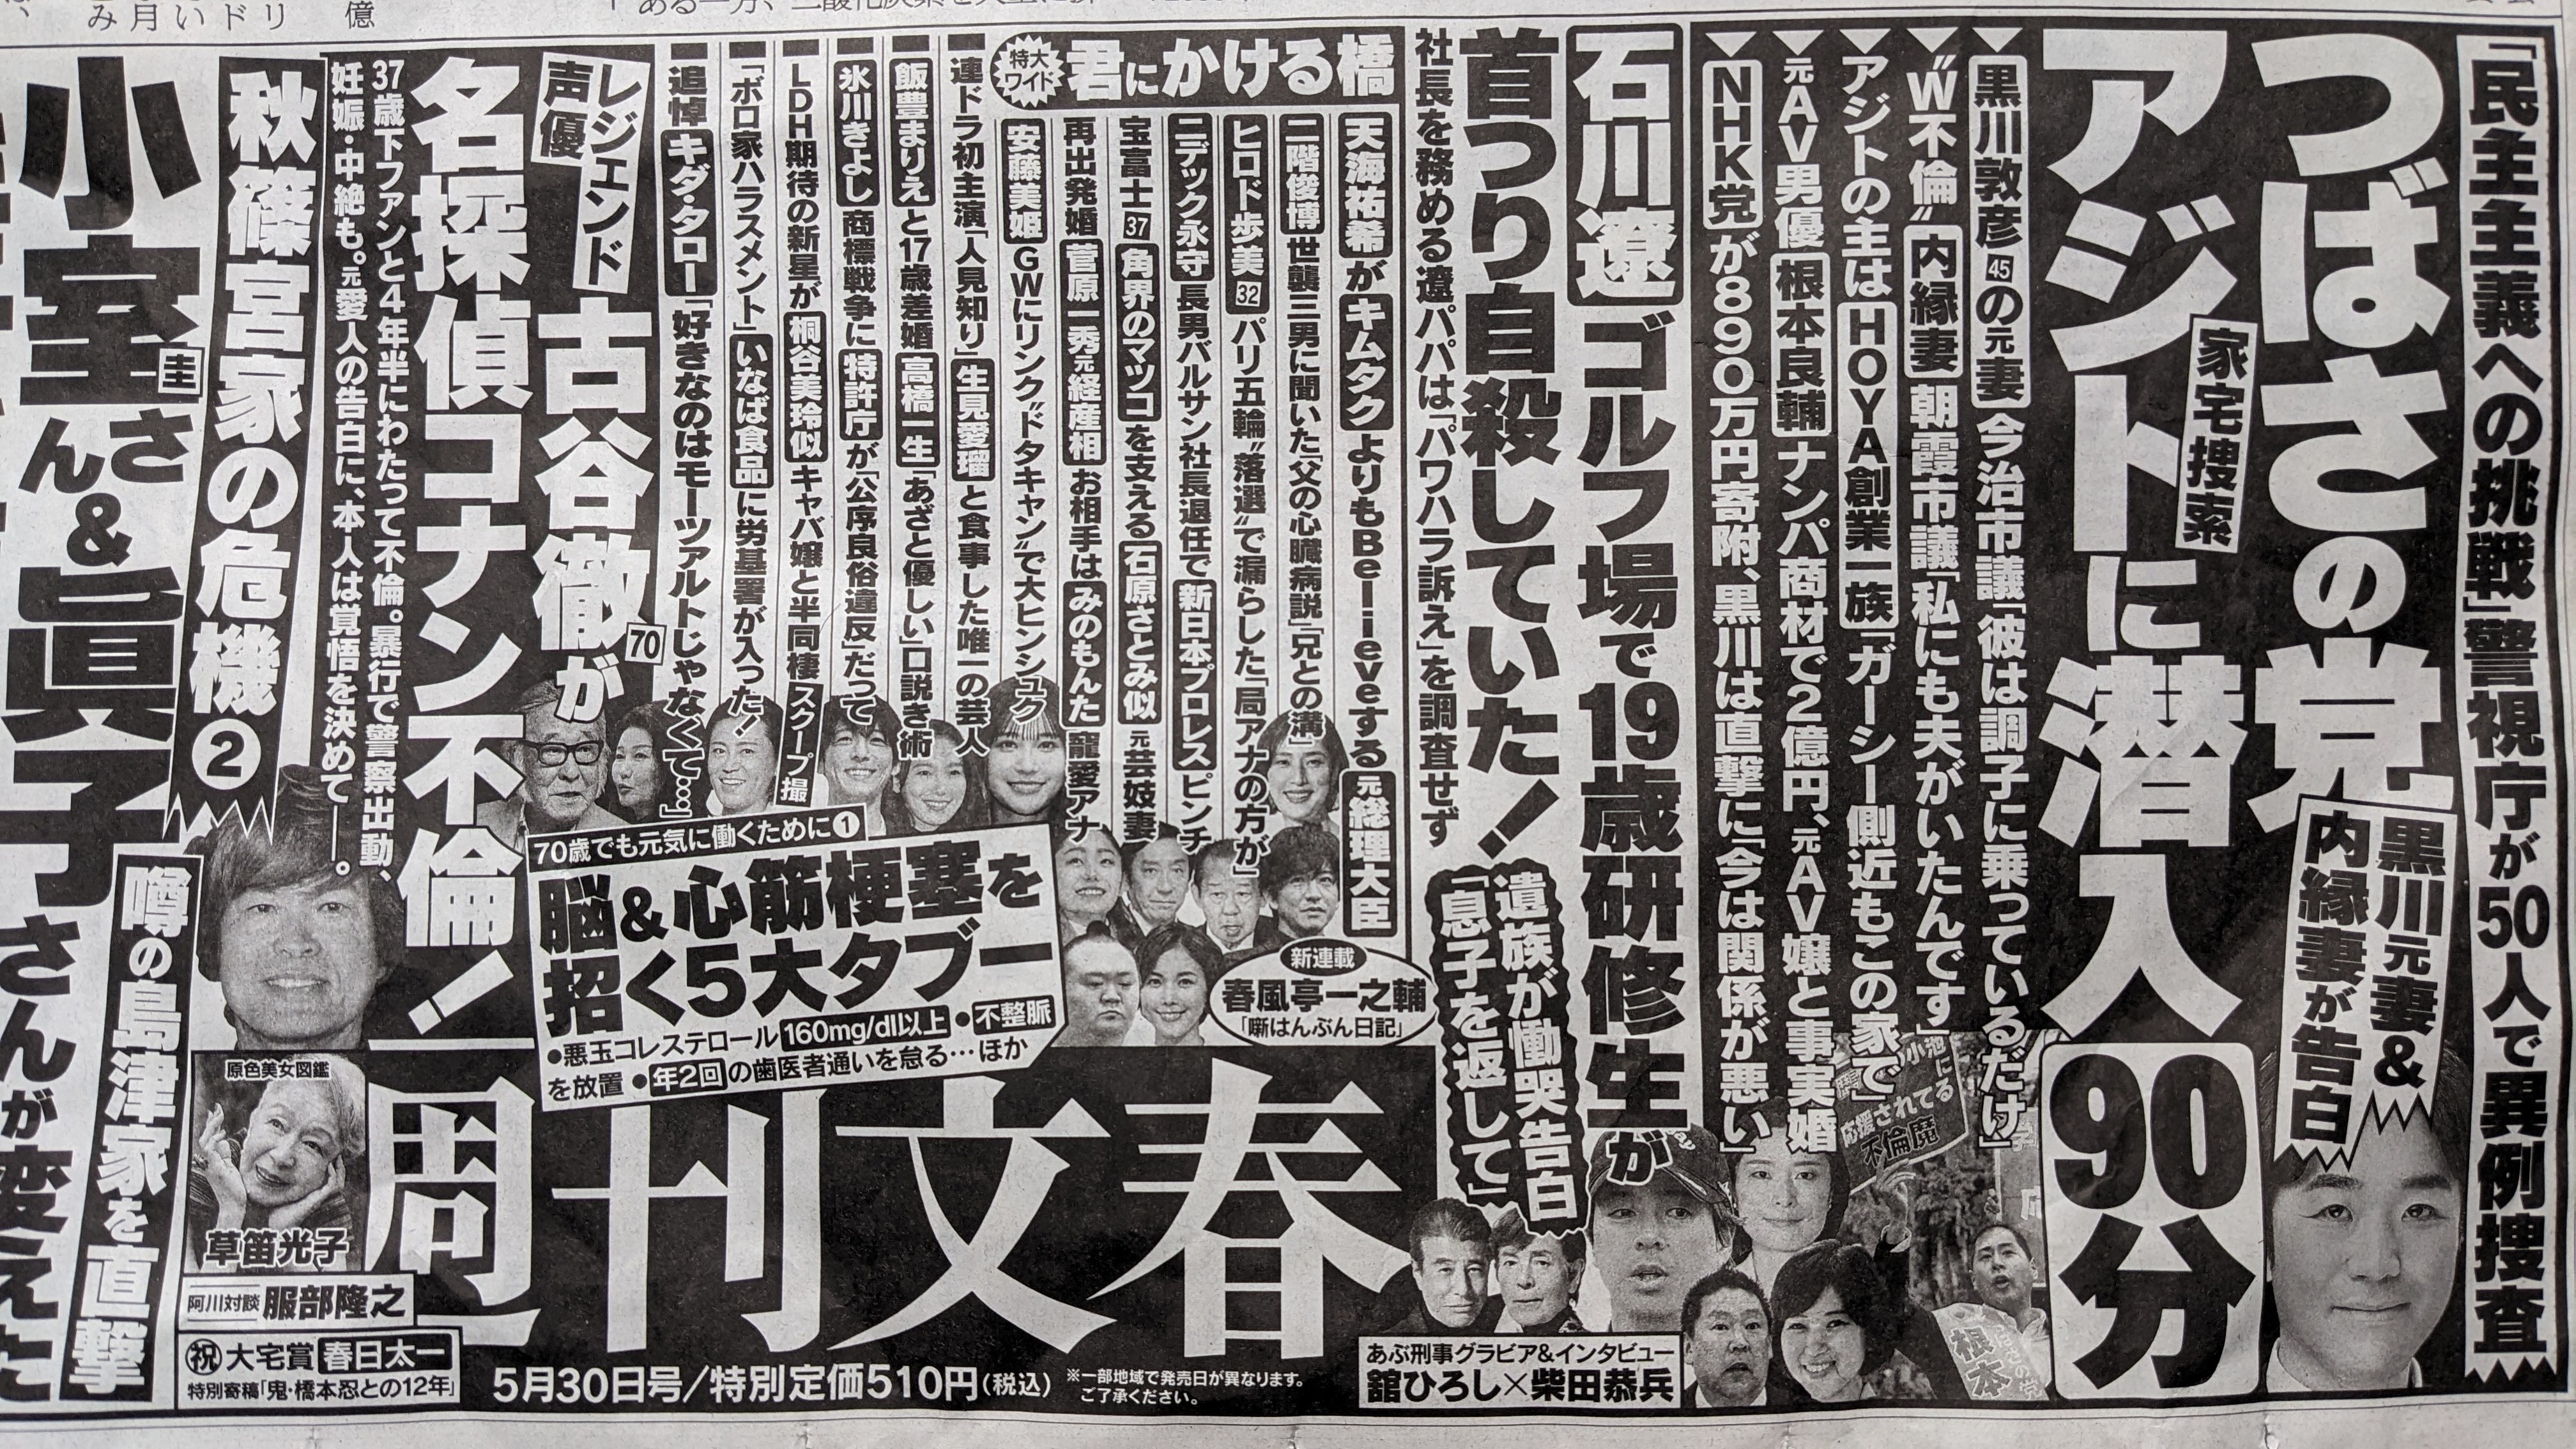 「民主主義への挑戦」警視庁が50人で異例捜査
つばさの党
黒川元妻&
内縁妻が告白
家宅捜索
アジトに潜入90分
▼黒川敦彦45の元妻 今治市議「彼は調子に乗っているだけ」
▼“W不倫”内縁妻 朝霞市議「私にも夫がいたんです」
▼アジトの主はHOYA創業一族「ガーシー側近もこの家で」
▼元AV男優 根本良輔 ナンパ商材で2億円、元AV嬢と事実婚
▼NHK党が890万円寄附、黒川は直撃に「今は関係が悪い」
小池に
応援されてる
不倫魔
根本
石川遼 ゴルフ場で19歳研修生が
首つり自殺していた!
遺族が慟哭告白
「息子を返して」
社長を務める遼パパは「パワハラ訴え」を調査せず
特大
ワイド
君にかける橋
天海祐希がキムタクよりもBelieveする元総理大臣
二階俊博 世襲三男に聞いた「父の心臓病説」「兄との溝」
ヒロド歩美32 パリ五輪“落選”で漏らした「局アナの方が」
ニデック永守 長男バルサン社長退任で新日本プロレスピンチ
宝富士37 角界のマツコを支える石原さとみ似 元芸妓妻
再出発婚 菅原一秀元経産相 お相手はみのもんた寵愛アナ
安藤美姫 GWにリンク“ドタキャン”で大ヒンシュク
連ドラ初主演「人見知り」生見愛瑠と食事した唯一の芸人
飯豊まりえと17歳差婚 高橋一生「あざと優しい」口説き術
氷川きよし 商標戦争に特許庁が「公序良俗違反」だって
LDH期待の新星が桐谷美玲似キャバ嬢と半同棲 スクープ撮
「ボロ家ハラスメント」いなば食品に労基署が入った!
追悼 キダ・タロー「好きなのはモーツァルトじゃなくて…」
新連載
春風亭一之輔
「噺はんぶん日記」
レジェンド
声優
古谷徹70が
名探偵コナン不倫!
37歳下ファンと4年半にわたって不倫。暴行で警察出動、
妊娠・中絶も。元愛人の告白に、本人は覚悟を決めて――。
70歳でも元気に働くために①
脳&心筋梗塞を
招く5大タブー
●悪玉コレステロール160mg/dl以上 ●不整脈
を放置 ●年2回の歯医者通いを怠る…ほか
秋篠宮家の危機②
小室圭さん&眞子さんが変えた
噂の島津家を直撃
原色美女図鑑
草笛光子
阿川対談 服部隆之
祝 大宅賞 春日太一
特別寄稿「鬼・橋本忍との12年」
週刊文春
5月30日号/特別定価510円(税込)
※一部地域で発売日が異なります。
ご了承ください。
あぶ刑事グラビア&インタビュー
舘ひろし×柴田恭兵